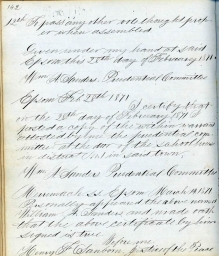 142
13th To pass any other vote thought prop
er when assembled
Given under my hand at said
Epsom this 28th day of February 1871
Wm A Sanders Prudential Committee
Epsom Feb 28th 1871
I certify that
on the 28th day of February 1871 I
posted a copy of the within warrant
attested before the prudential com
mittee at the door of the school house
in district No 1 in said town
Wm A Sanders Prudential Committee
Merrimack ss Epsom March 14 1871
Personally appeared the above named
William A Sanders and made oath
that the above certificate by him
signed is true
Before me
Henry F Sanborn Justice of the Peace